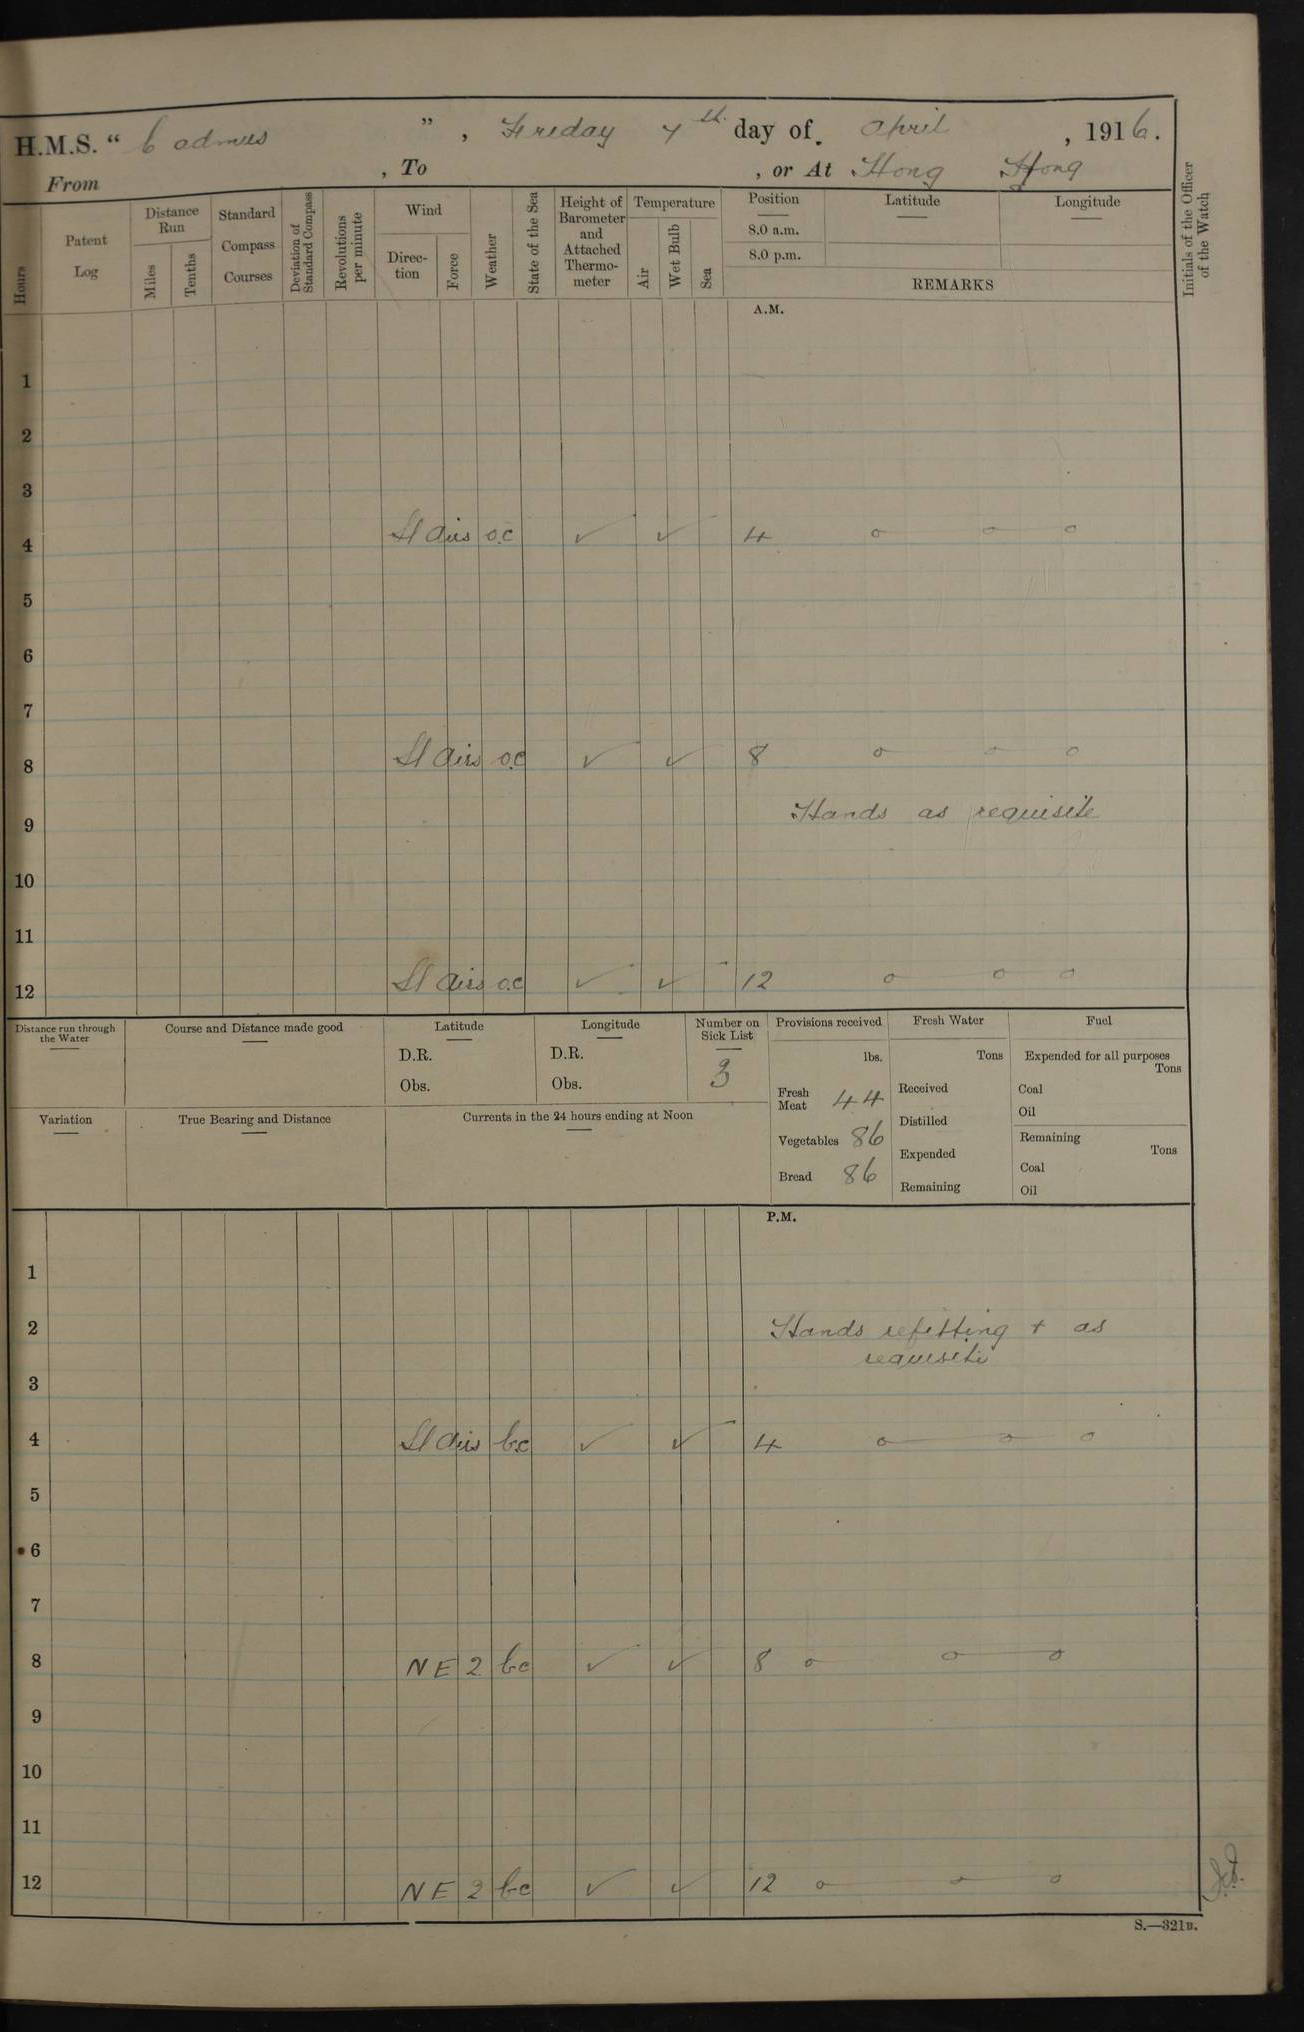 H.M.S. “ Cadmus ” , Friday 7th day of April , 1916.
From , To , or At Hong Kong
Hours
Patent Log
Distance Run
Miles
Tenths
Standard Compass Courses
Deviation of Standard Compass
Revolutions per minute
Wind
Direc-tion
Force
Weather
State of the Sea
Height of Barometer and Attached Thermo-meter
Temperature
Air
Wet Bulb
Sea
Position
8.0 a.m.
8.0 p.m.
Latitude
Longitude
REMARKS
Initials of the Officer of the Watch
A.M.
1
2
3
4 Lt airs o.c ✓ ✓ 4 o o o
5
6
7
8 Lt airs o.c ✓ ✓ 8 o o o
Hands as requisite
9
10
11
12 Lt airs o.c ✓ ✓ 12 o o o
Distance run through the Water
Course and Distance made good
Latitude
D.R.
Obs.
Longitude
D.R.
Obs.
Number on Sick List
3
Provisions received
lbs.
Fresh Meat 44
Vegetables 86
Bread 86
Fresh Water
Tons
Received
Distilled
Expended
Remaining
Fuel
Expended for all purposes
Tons
Coal
Oil
Remaining
Tons
Coal
Oil
Variation
True Bearing and Distance
Currents in the 24 hours ending at Noon
P.M.
1
2 Hands refitting + as
requisite
3
4 Lt airs b.c ✓ ✓ 4 o o o
5
6
7
8 NE 2 bc ✓ ✓ 8 o o o
9
10
11
12 NE 2 bc ✓ ✓ 12 o o o
S.—321B.